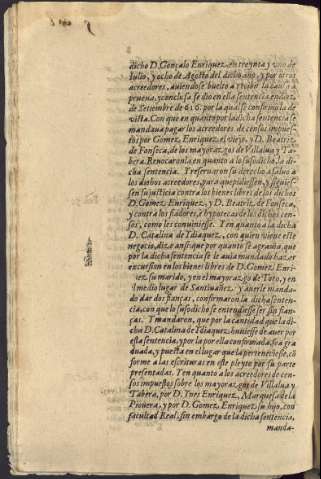 dicho D. Gonçalo Enriquez, en treynta y vno de
Iulio, y ocho de Agosto del dicho año, y por otros
acreedores, auiendose buelto a recibir la causa a
prueua, y conclusa se dio en ella sentencia, en doze
de Setiembre de 616. por la qual se confirmò la de
vista. Con que en quanto por la dicha sentencia se
mandaua pagar los acreedores de censos impues-
tos por Gomez Enriquez, el viejo, y D. Beatriz
de Fonseca, de los mayorazgos de Villalua y Ta-
bera. Reuocaron la en quanto a lo susodicho, la di-
cha sentencia. Y reseruaron su derecho a saluo a
los dichos acreedores, para que pidiessen, y siguies-
sen su justicia contra los bienes libres de los dichos
D. Gomez Enriquez, y D. Beatriz, de Fonseca,
y contra los fiadores, è hypotecas de los dichos cen-
sos, como les conuiniesse. Y en quanto a la dicha
D. Catalina de Ydiaquez, con quien tiene este
negocio, dize ansi que por quanto se agrauia, que
por la dicha sentencia se le auia mandado hazer
excursion en los bienes libres de D. Gomez Enri-
quez su marido, y en el mayorazgo de Toto, y en
el medio lugar de Santiuañez. Y auerle manda-
do dar dos fianças, confirmaron la dicha senten-
cia, con que lo susodicho se entendiesse ser sin fian-
ças. Y mandaron, que por la cantidad que la di-
cha D. Catalina de Ydiaquez, huuiesse de auer por
esta sentencia, y por la por ella confirmada, sea gra-
duada, y puesta en el lugar que la perteneciesse, cõ
forme a las escrituras en este pleyto por su parte
presentadas. Y en quanto a los acreedores de cen-
sos impuestos sobre los mayorazgos de Villalua y
Tabera, por D. Ynes Enriquez, Marquesa de la
Piouera, y por D. Gomez, Enriquez, su hijo, con
facultad Real, sin embargo de la dicha sentencia,
manda-